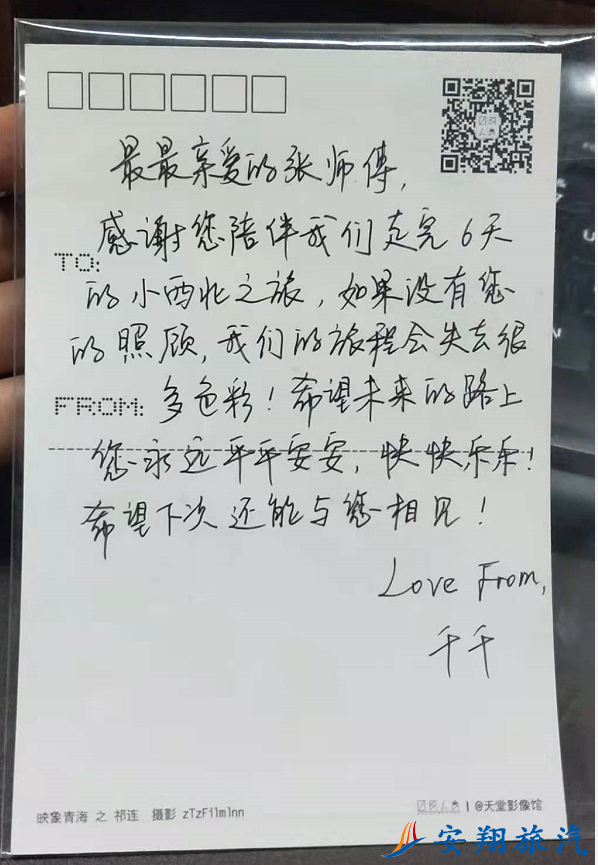 最最亲爱的张师傅，
感谢您陪伴我们走完6天
TO:
的小西北之旅，如果没有您
的照顾，我们的旅程会失去很
FROM: 多色彩！希望未来的路上
您永远平平安安，快快乐乐！
希望下次还能与您相见！
Love From,
千千
映象青海 之 祁连 摄影 zTzFilmInn
|@天堂影像馆
安翔旅汽